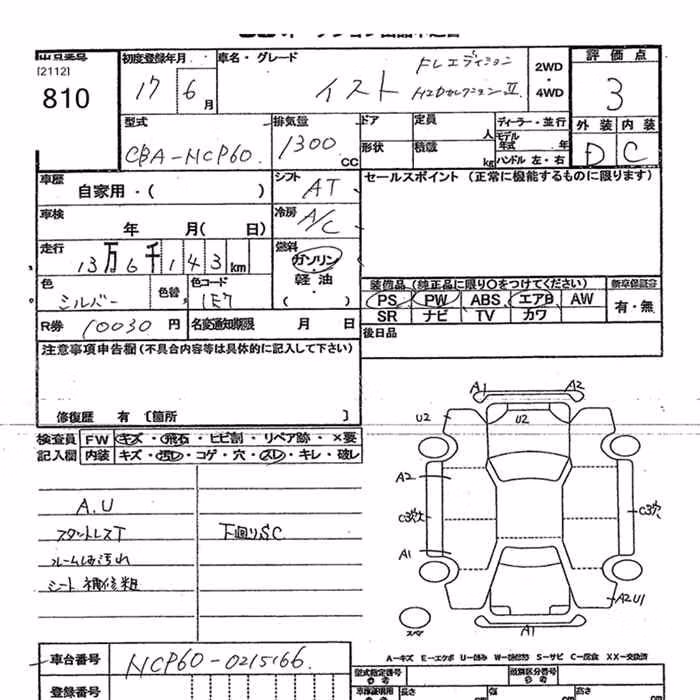 出品番号
[2112]
810
初度登録年月
17 6 月
車名・グレード
イスト
FLエディション
HIDセレクションⅡ
2WD
・
4WD
評価点
3
外装 内装
D C
型式
CBA-NCP60
排気量
1300 CC
ドア
形状
定員 人
積載 kg
ディーラー・並行
モデル年式 年
ハンドル 左・右
車歴
自家用・( )
シフト
AT
セールスポイント (正常に機能するものに限ります)
車検
年 月( 日)
冷房
A/C
走行
13万6千143km
燃料
ガソリン
・
軽油
・
( )
色
シルバー
色替
色コード
1E7
装備品 (純正品に限り○をつけてください)
PS PW ABS エアB AW
SR ナビ TV カワ
新車保証書
有・無
R券 10030 円
名変通知期限 月 日
後日品
注意事項申告欄 (不具合内容等は具体的に記入して下さい)
修復歴 有 〔箇所 〕
検査員
記入欄
FW キズ・飛石・ヒビ割・リペア跡・×要
内装 キズ・汚レ・コゲ・穴・スレ・キレ・破レ
A.U
スタットレスT
下回りSC
フロームシ汚れ
シート補修粗
A1 A2
U2 U2
A2
C3穴 C3穴
A1
A2U1
A1
スペア
車台番号 NCP60-0215166
登録番号
A－キズ E－エクボ U－凹み W－補修跡 S－サビ C－腐食 XX－交換済
型式指定番号
類別区分番号
長さ 幅 高さ